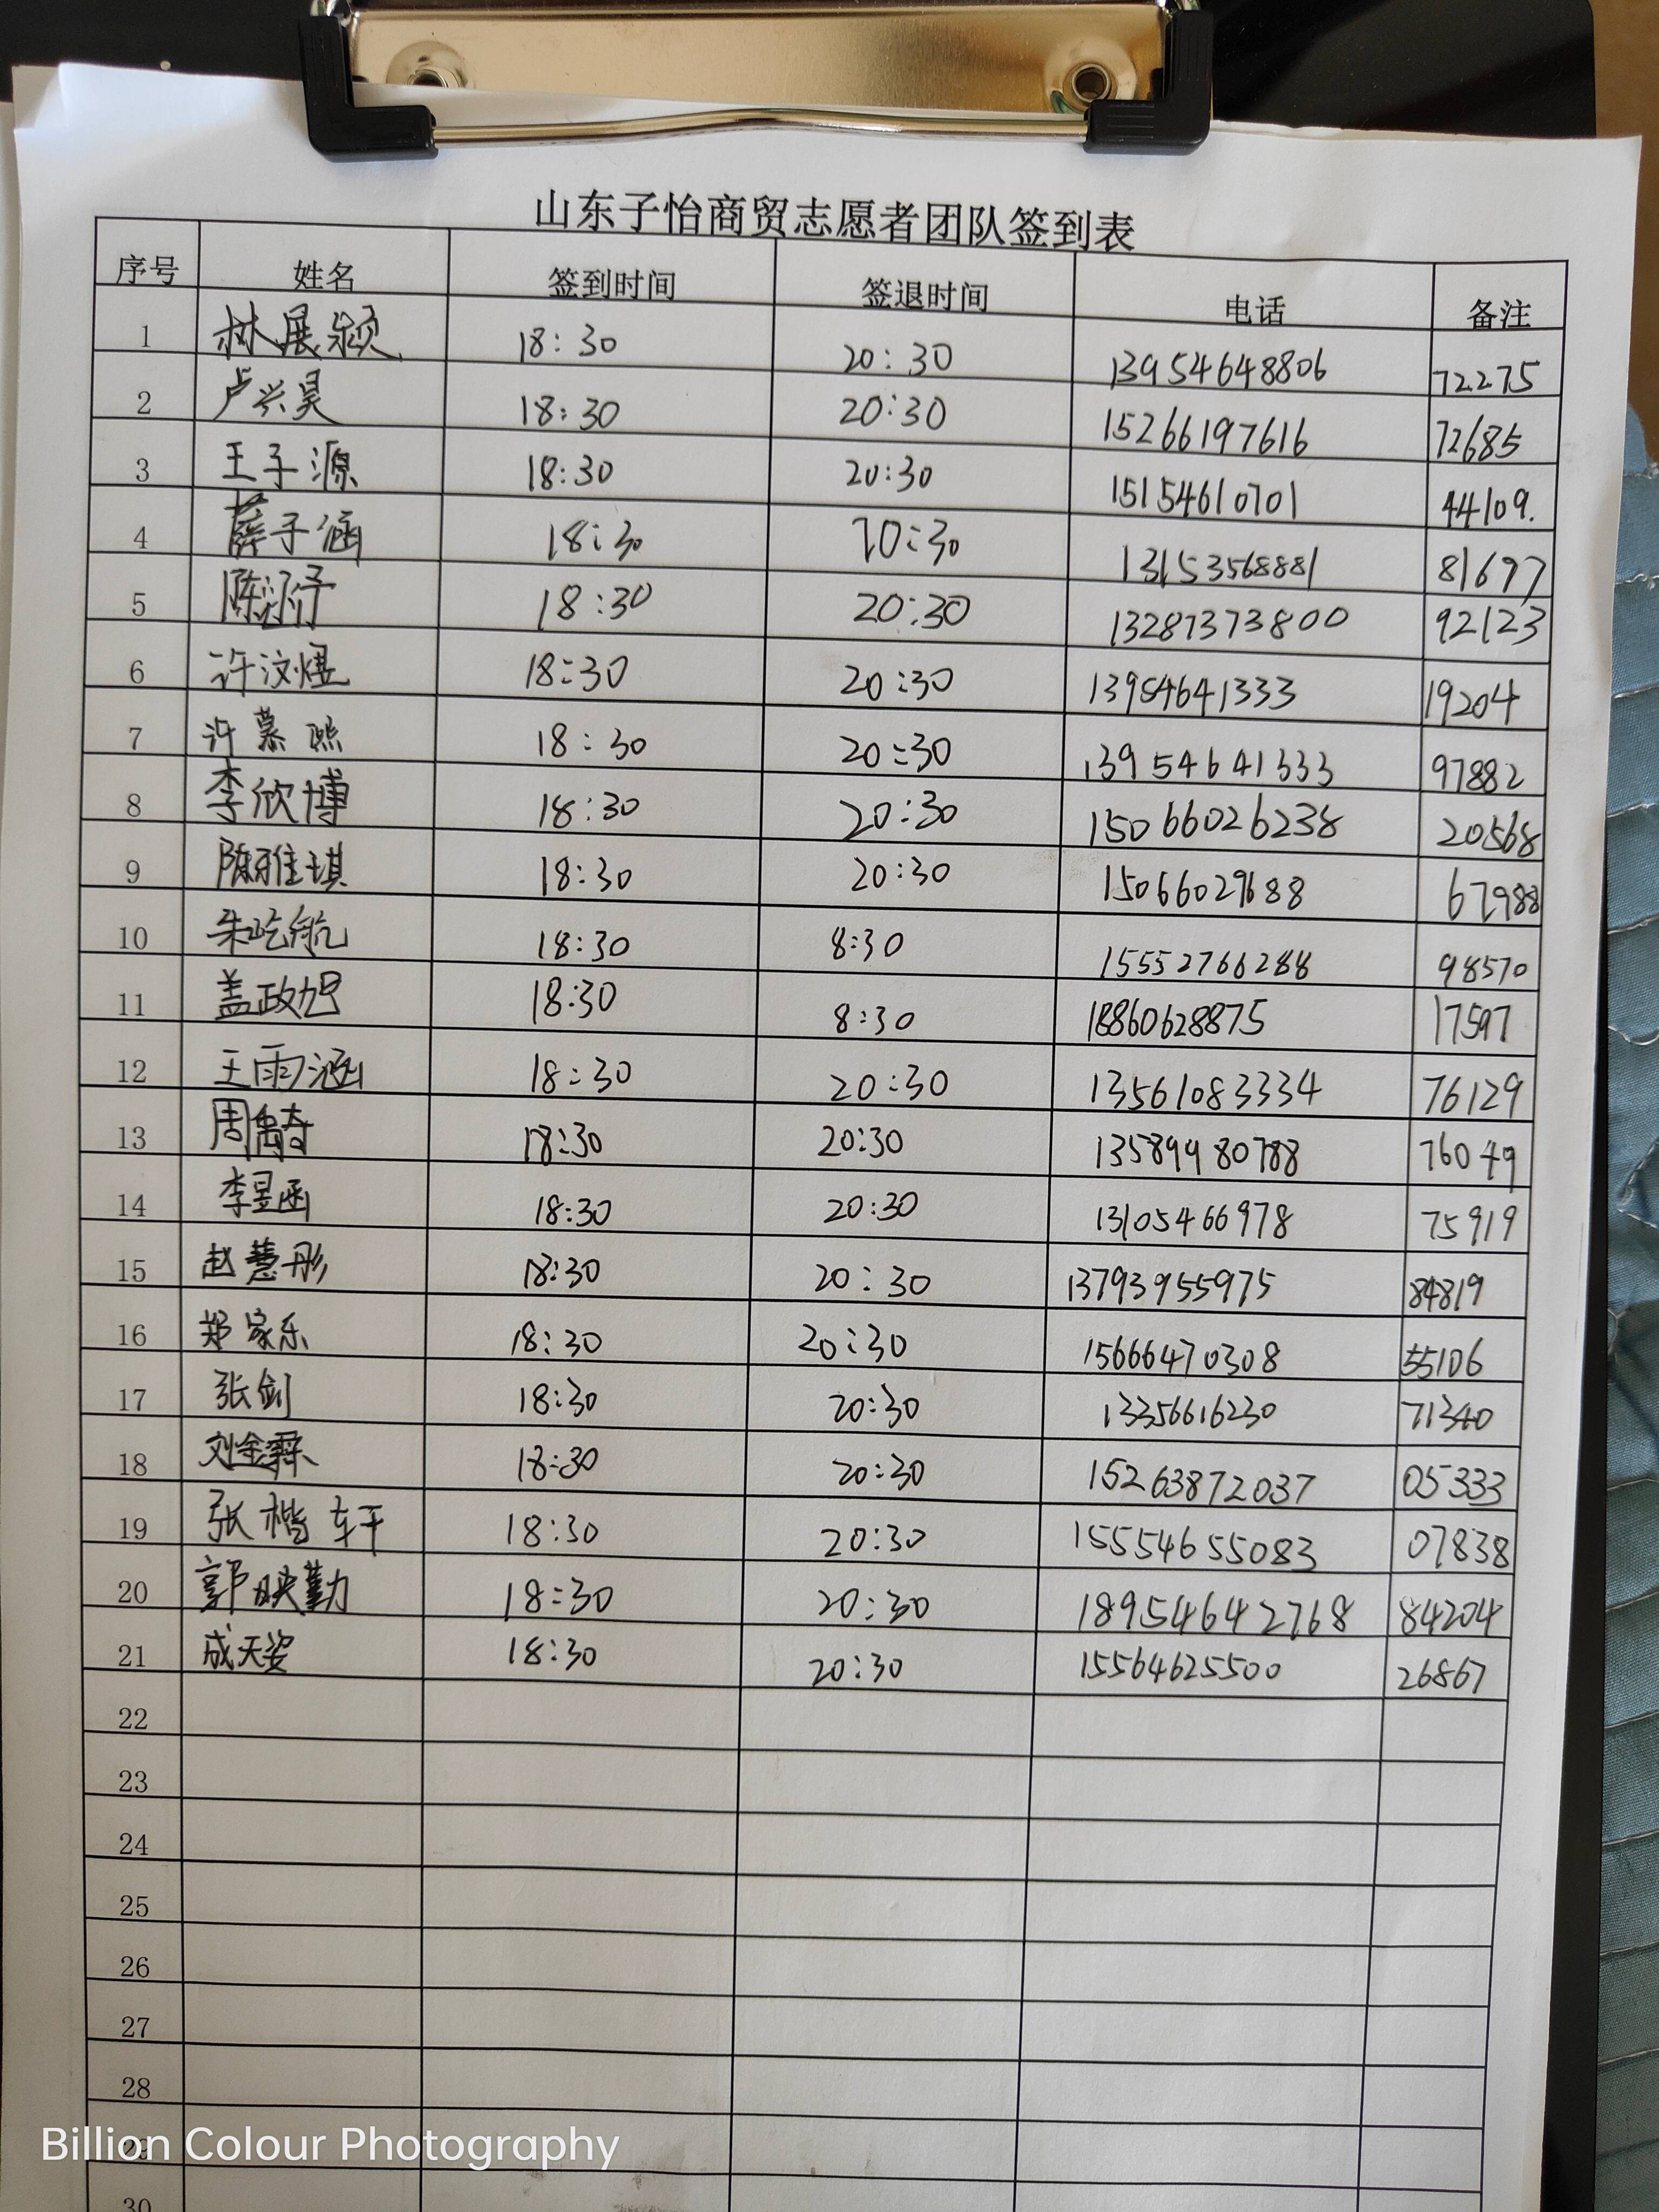 山东子怡商贸志愿者团队签到表
序号 姓名 签到时间 签退时间 电话 备注
1 林展颍 18:30 20:30 13954648806 72275
2 卢兴昊 18:30 20:30 15266197616 72685
3 王子源 18:30 20:30 15154610701 44109.
4 薛子涵 18:30 20:30 13153568881 81697
5 18:30 20:30 13287373800 92123
6 许汶煜 18:30 20:30 13954641333 19204
7 许慕熙 18:30 20:30 13954641333 97882
8 李欣博 18:30 20:30 15066026238 20568
9 陈雅琪 18:30 20:30 15066029688 67988
10 朱屹航 18:30 8:30 15552766288 98570
11 盖政旭 18:30 8:30 18860628875 17597
12 王雨涵 18:30 20:30 13561083334 76129
13 周禹奇 18:30 20:30 13589980788 76049
14 李昱函 18:30 20:30 13105466978 75919
15 赵慧彤 18:30 20:30 13793955975 84819
16 郑家乐 18:30 20:30 15666470308 55106
17 张剑 18:30 20:30 13356616230 71340
18 刘金霖 18:30 20:30 15263872037 05333
19 张楷轩 18:30 20:30 15554655083 07838
20 郭映勤 18:30 20:30 18954642768 84204
21 成天姿 18:30 20:30 15564625500 26867
22
23
24
25
26
27
28
29
30
Billion Colour Photography